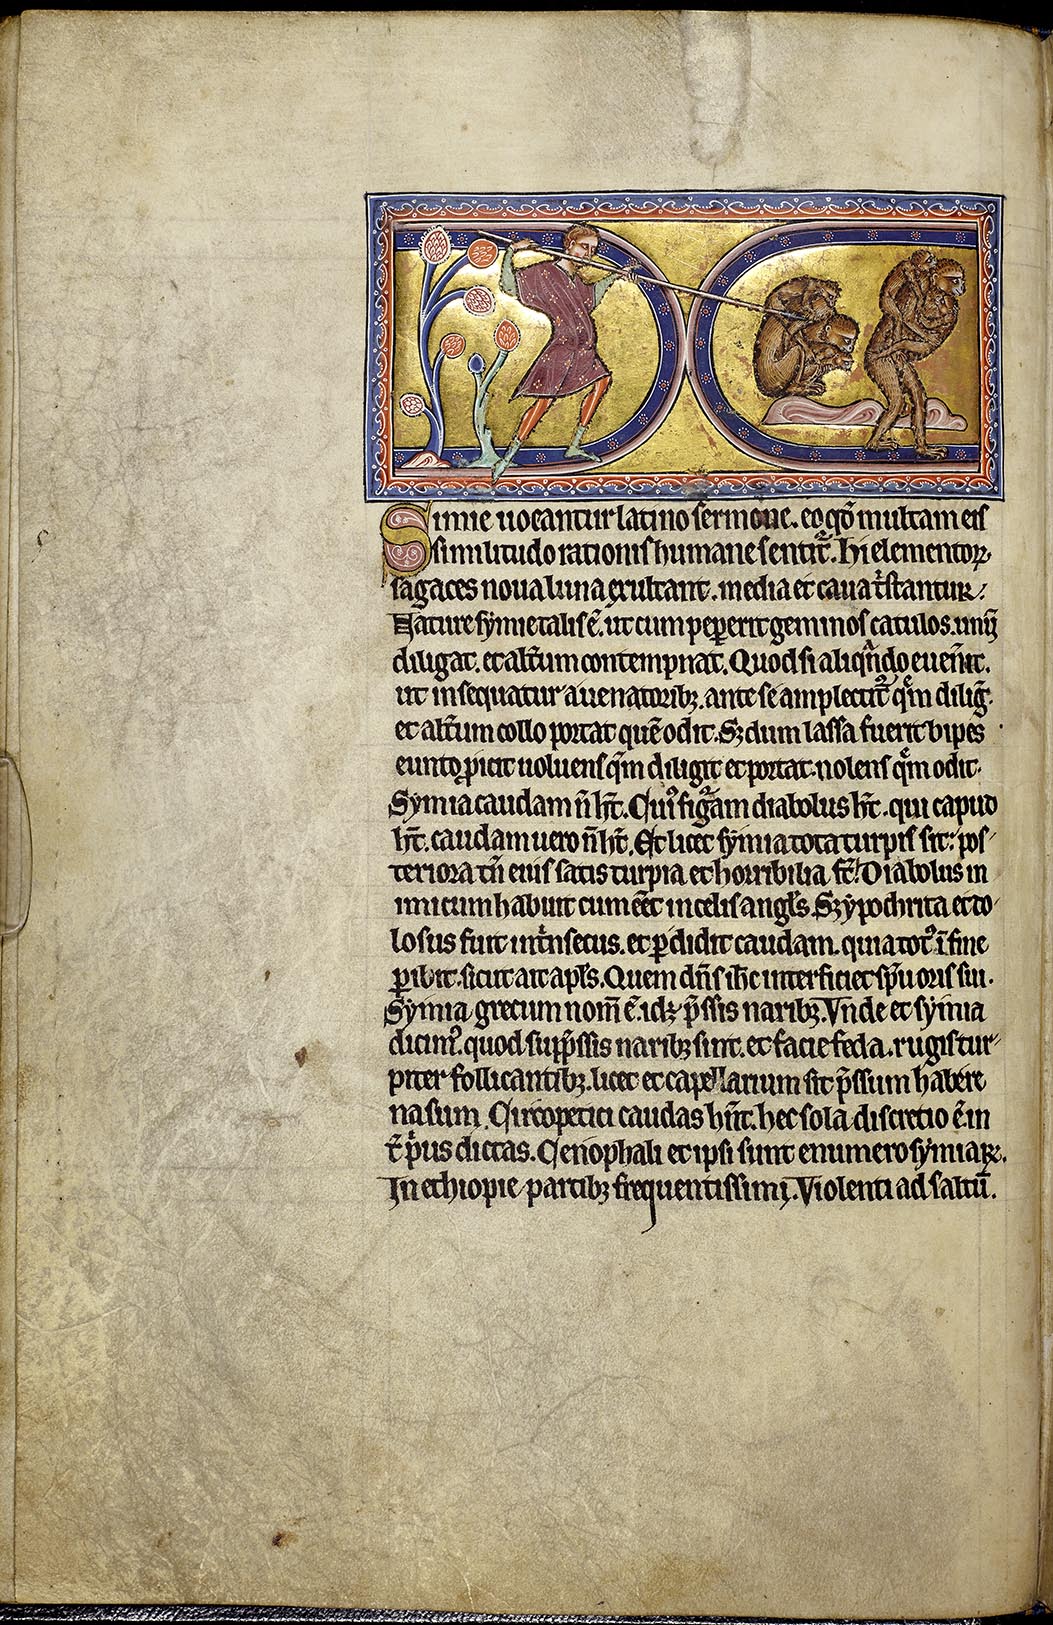 Simie uocantur latino sermone. eo qȯ multam eis
similitudo rationis humane sentit̄. Hi elementoꝝ
sagaces noua luna exultant. media et caua tͥstantur.
Nature symie talis ē. ut cum pepererit geminos catulos. unū
diligat. et alt̄um contempnat. Quod si aliqn̄do euen̄it.
ut insequatur a uenatoribꝫ. ante se amplectit᷒ qͤm diligͥ.
et alt̄um collo portat quē odit. Sꝫ dum lassa fuerit bipes
eundo ꝓicit uolens qͤm diligit et portat nolens qͤm odit.
Symia caudam n̄ ht̄. Cui᷒ figͣam diabolus ht̄. qui capud
ht̄. caudam uero n̄ ht̄. Et licet symia tota turpis sit: pos-
teriora tn̄ eius satis turpia et horribilia st̄. Diabolus in
inicium habuit cum eēt in celis angl̄s. Sꝫ ypochrita et do-
losus fuit intͥnsecus. et ꝑdidit caudam. quia tot᷒ ī fine
ꝑibit. sicut ait apl̄s. Quem dn̄s ih̄c interficiet sp̄u oris sui.
Symia grecum nom̄ ē. idꝫ p̄ssis naribꝫ. Vnde et symia
dicim᷒. quod supp̄ssis naribꝫ sint. et facie feda. rugis tur-
piter follicantibꝫ. licet et capellarum sit p̄ssum habere
nasum. Circopetici caudas hn̄t. hec sola discretio ē. in
t̄ pͥus dictas. Cenophali et ipsi sunt e numero symiaꝝ.
In ethiopie partibꝫ frequentissimi. Violenti ad saltū.